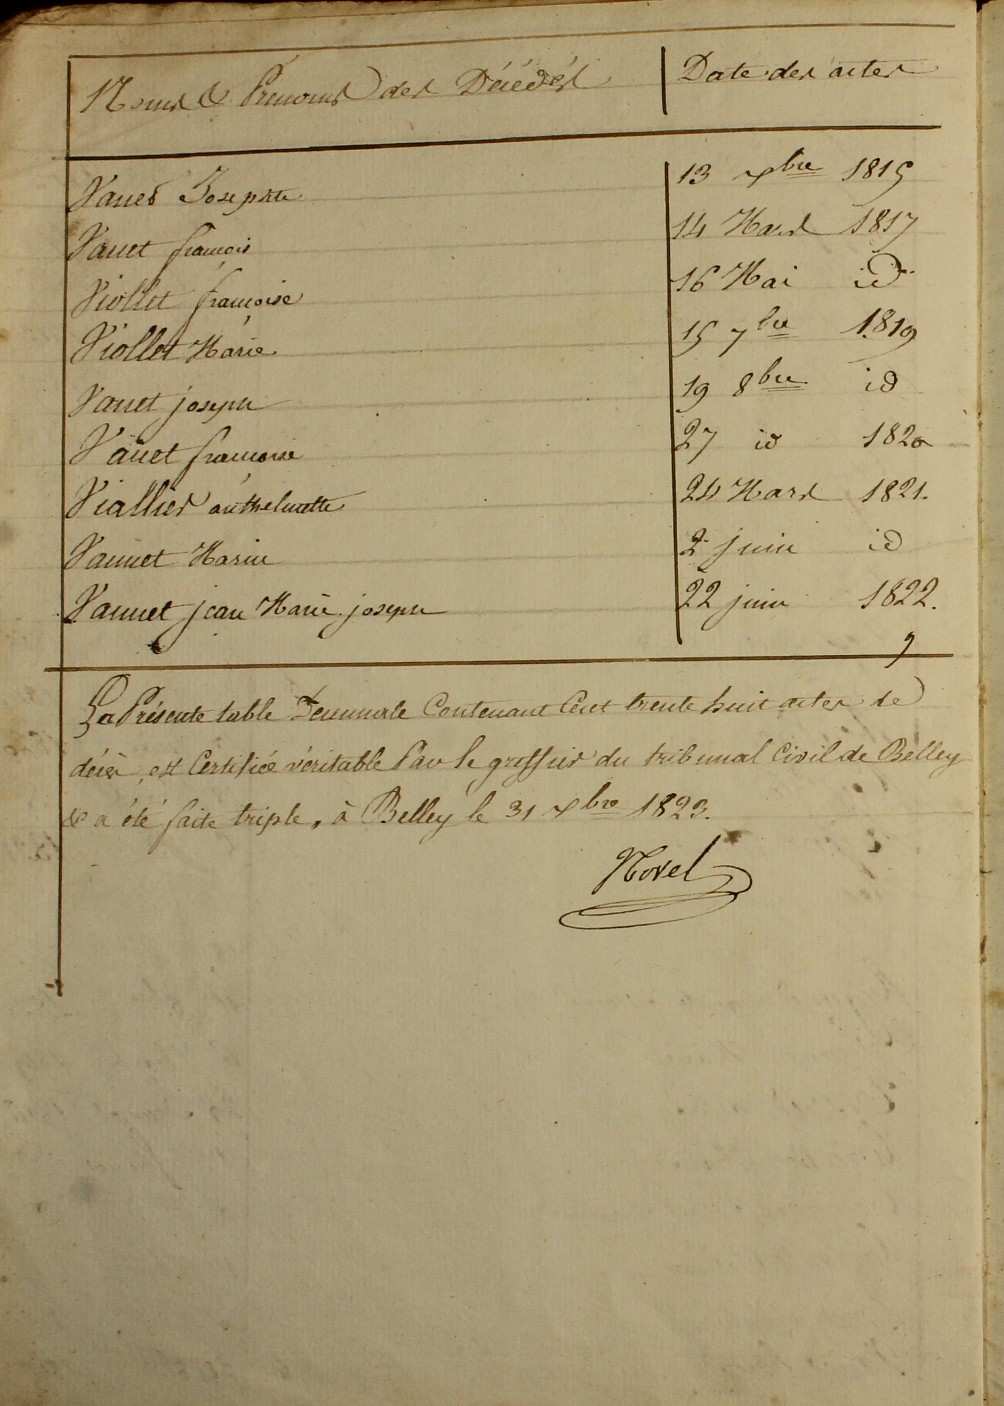 Noms & Prénoms des Décédés Date des actes
Vanet Josephte 13 xbre 1815
Vanet françois 14 Mars 1817
Viollet françoise 16 Mai id
Viollet Marie 15 7bre 1819
Vanet joseph 19 8bre id
Vanet françoise 27 id 1820
Viallier anthelmette 24 Mars 1821.
Vannet Marie 2 juin id
Vannet jean Marie joseph 22 juin 1822.
9
La Présente table Décennale Contenant Cent trente huit actes de
décès, est Certifiée véritable Par le greffier du tribunal Civil de Belley
& a été faite triple, à Belley le 31 xbre 1823.
Novel